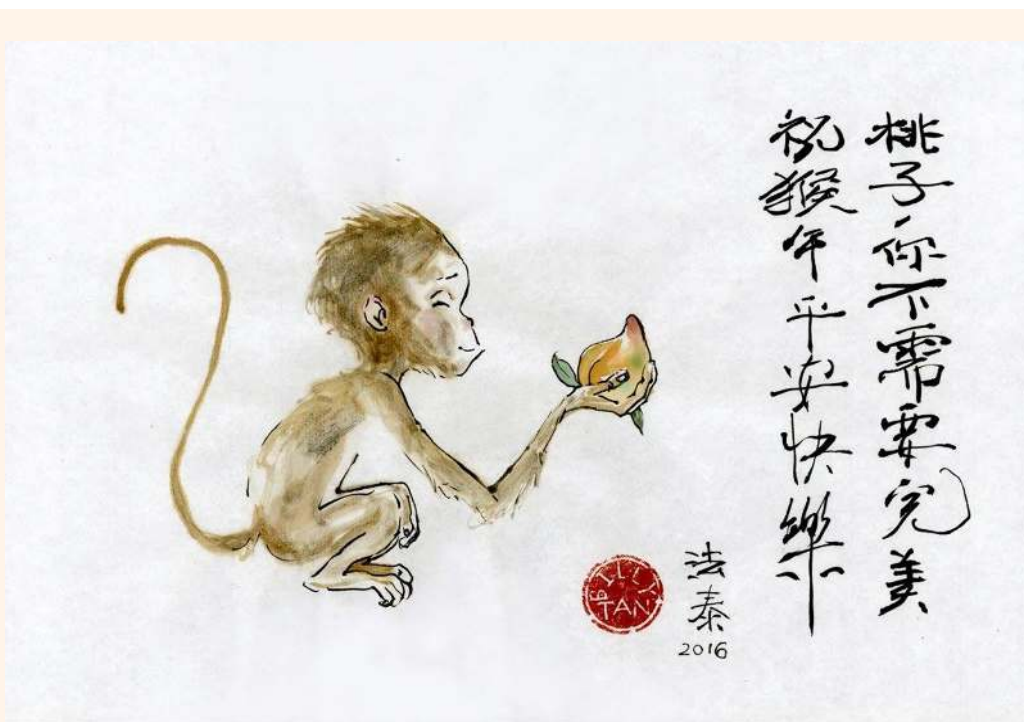 桃子，你不需要完美
祝猴年平安快樂
法泰
2016
BILLY
TAN